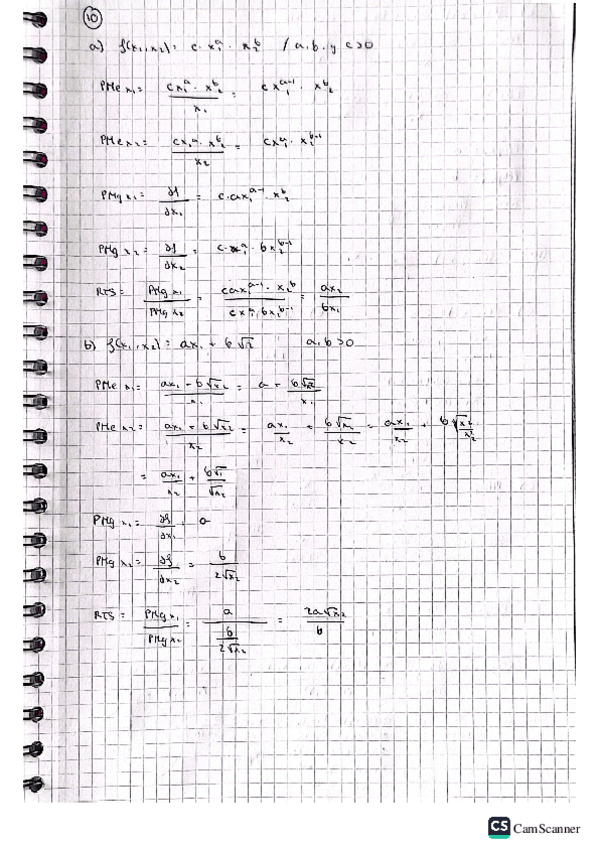 10
a) f(x₁, x₂) = c · x₁ᵃ · x₂ᵇ / a, b, y c > 0
PMe x₁ = (c x₁ᵃ · x₂ᵇ) / x₁ = c x₁ᵃ⁻¹ · x₂ᵇ
PMe x₂ = (c x₁ᵃ · x₂ᵇ) / x₂ = c x₁ᵃ · x₂ᵇ⁻¹
PMg x₁ = ∂f / ∂x₁ = c · a x₁ᵃ⁻¹ · x₂ᵇ
PMg x₂ = ∂f / ∂x₂ = c · x₁ᵃ · b x₂ᵇ⁻¹
RTS = PMg x₁ / PMg x₂ = (c a x₁ᵃ⁻¹ · x₂ᵇ) / (c x₁ᵃ · b x₂ᵇ⁻¹) = a x₂ / b x₁
b) f(x₁, x₂) = a x₁ + b √x₂ a, b > 0
PMe x₁ = (a x₁ + b √x₂) / x₁ = a + b √x₂ / x₁
PMe x₂ = (a x₁ + b √x₂) / x₂ = a x₁ / x₂ + b √x₂ / x₂ = a x₁ / x₂ + b √(x₂ / x₂²)
= a x₁ / x₂ + b √1 / √x₂
PMg x₁ = ∂f / ∂x₁ = a
PMg x₂ = ∂f / ∂x₂ = b / 2√x₂
RTS = PMg x₁ / PMg x₂ = a / (b / 2√x₂) = 2a √x₂ / b
CS CamScanner